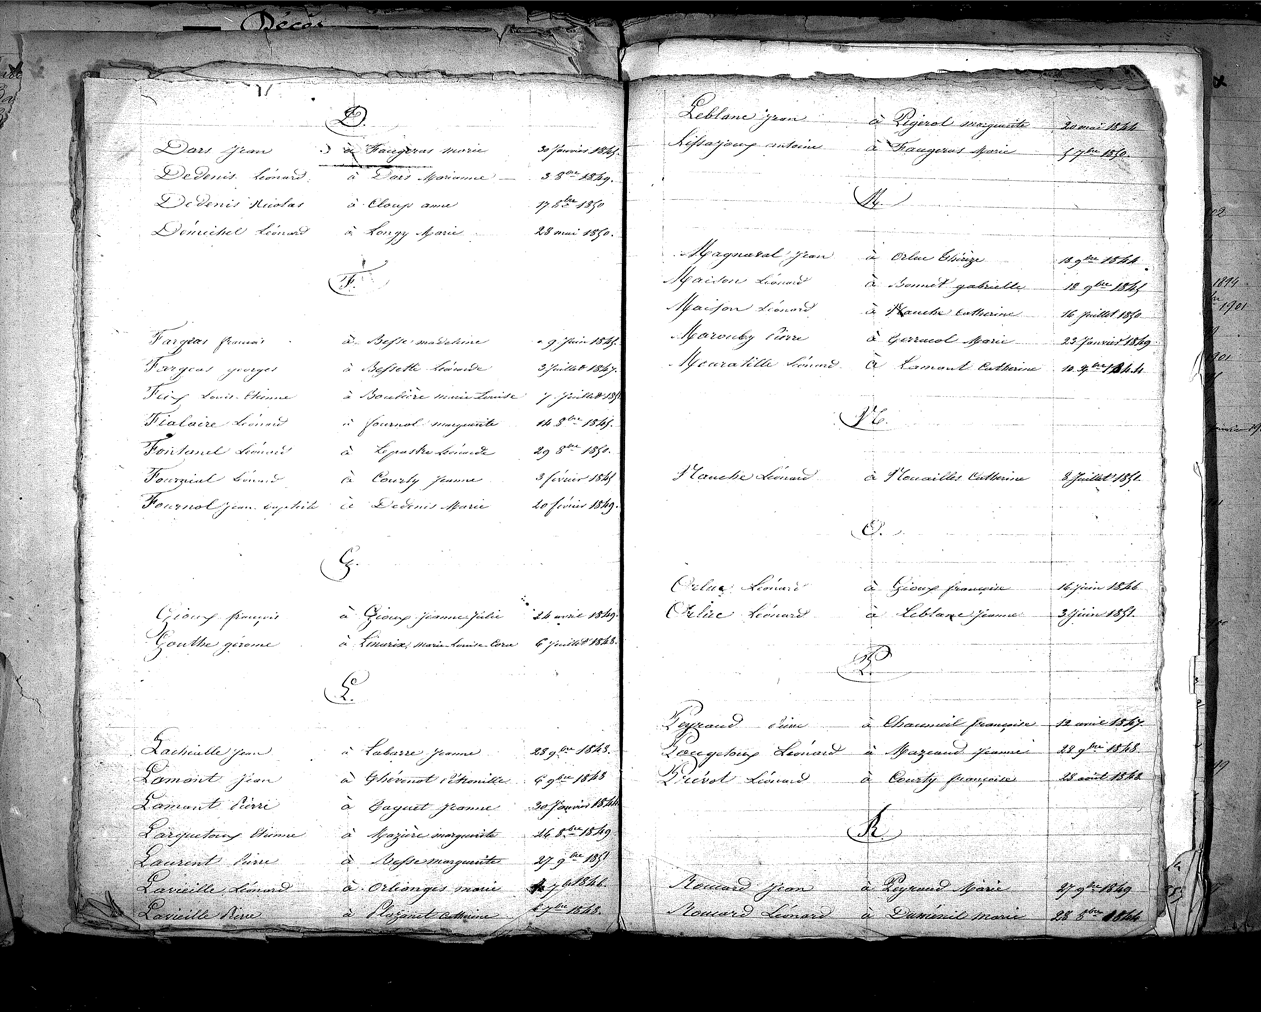 Décès
D.
Dars Jean à Faugeras marie 30 Janvier 1845.
Dedenis Léonard à Dars Marianne 3 8bre 1849.
Dedenis Nicolas à Cloup anne 17 8bre 1850
Dumichel Léonard à Longy Marie 28 mai 1850.
F.
Fargeas françois à Besse madeleine 9 Juin 1845.
Fargeas georges à Bessette Léonarde 3 Juillet 1847.
Feix Louis Etienne à Boutière marie Louise 7 Juillet 185
Fialaire Léonard à fournol marguerite 14 8bre 1845.
Fontanel Léonard à Lepastre Léonarde 29 8bre 1850.
Fournial Léonard à Courty Jeanne 3 février 1845
Fournol Jean baptiste à Dedenis Marie 20 février 1849.
G.
Gioux françois à Gioux Jeanne Julie 24 avril 1849.
Gouthe gérome à Limarix marie Louise 6 Juillet 1848.
L.
Lacheville Jean à Labarre Jeanne 28 9bre 1843.
Lamont Jean à Thévenot Pétronille 6 9bre 1843
Lamont Pierre à Paquet Jeanne 30 Janvier 1844
Larquetoux Etienne à Mazière marguerite 26 8bre 1849
Laurent Pierre à Besse marguerite 27 9bre 1851
Lavieille Léonard à Orliangis marie 7bre 1846.
Lavieille Pierre à Plazanet Catherine 7bre 1848.
Leblanc Jean à Pégerol marguerite 20 mai 1844
Lissajoux antoine à Faugeras Marie 5 7bre 1850.
M.
Magnaval Jean à Orluc Thérèze 18 9bre 1844
Maison Léonard à Bonnet gabrielle 18 9bre 1845
Maison Léonard à Nauche Catherine 16 Juillet 1850
Marouby Pierre à Gerraud Marie 23 Janvier 1849
Mouratille Léonard à Lamont Catherine 1844
N.
Nauche Léonard à Nouailles Catherine 8 Juillet 1851.
O.
Orluc Léonard à Gioux françoise 16 Juin 1846
Orluc Léonard à Leblanc Jeanne 3 Juin 1851.
P.
Peyraud Pierre à Chaumeil françoise 12 avril 1847.
Pougetoux Léonard à Mazeaud Jeanne 28 9bre 1848.
Prévot Léonard à Courty françoise 28 août 1848.
R
Rouard Jean à Peyraud Marie 27 9bre 1849
Rouard Léonard à Duménil marie 28 8bre 1844